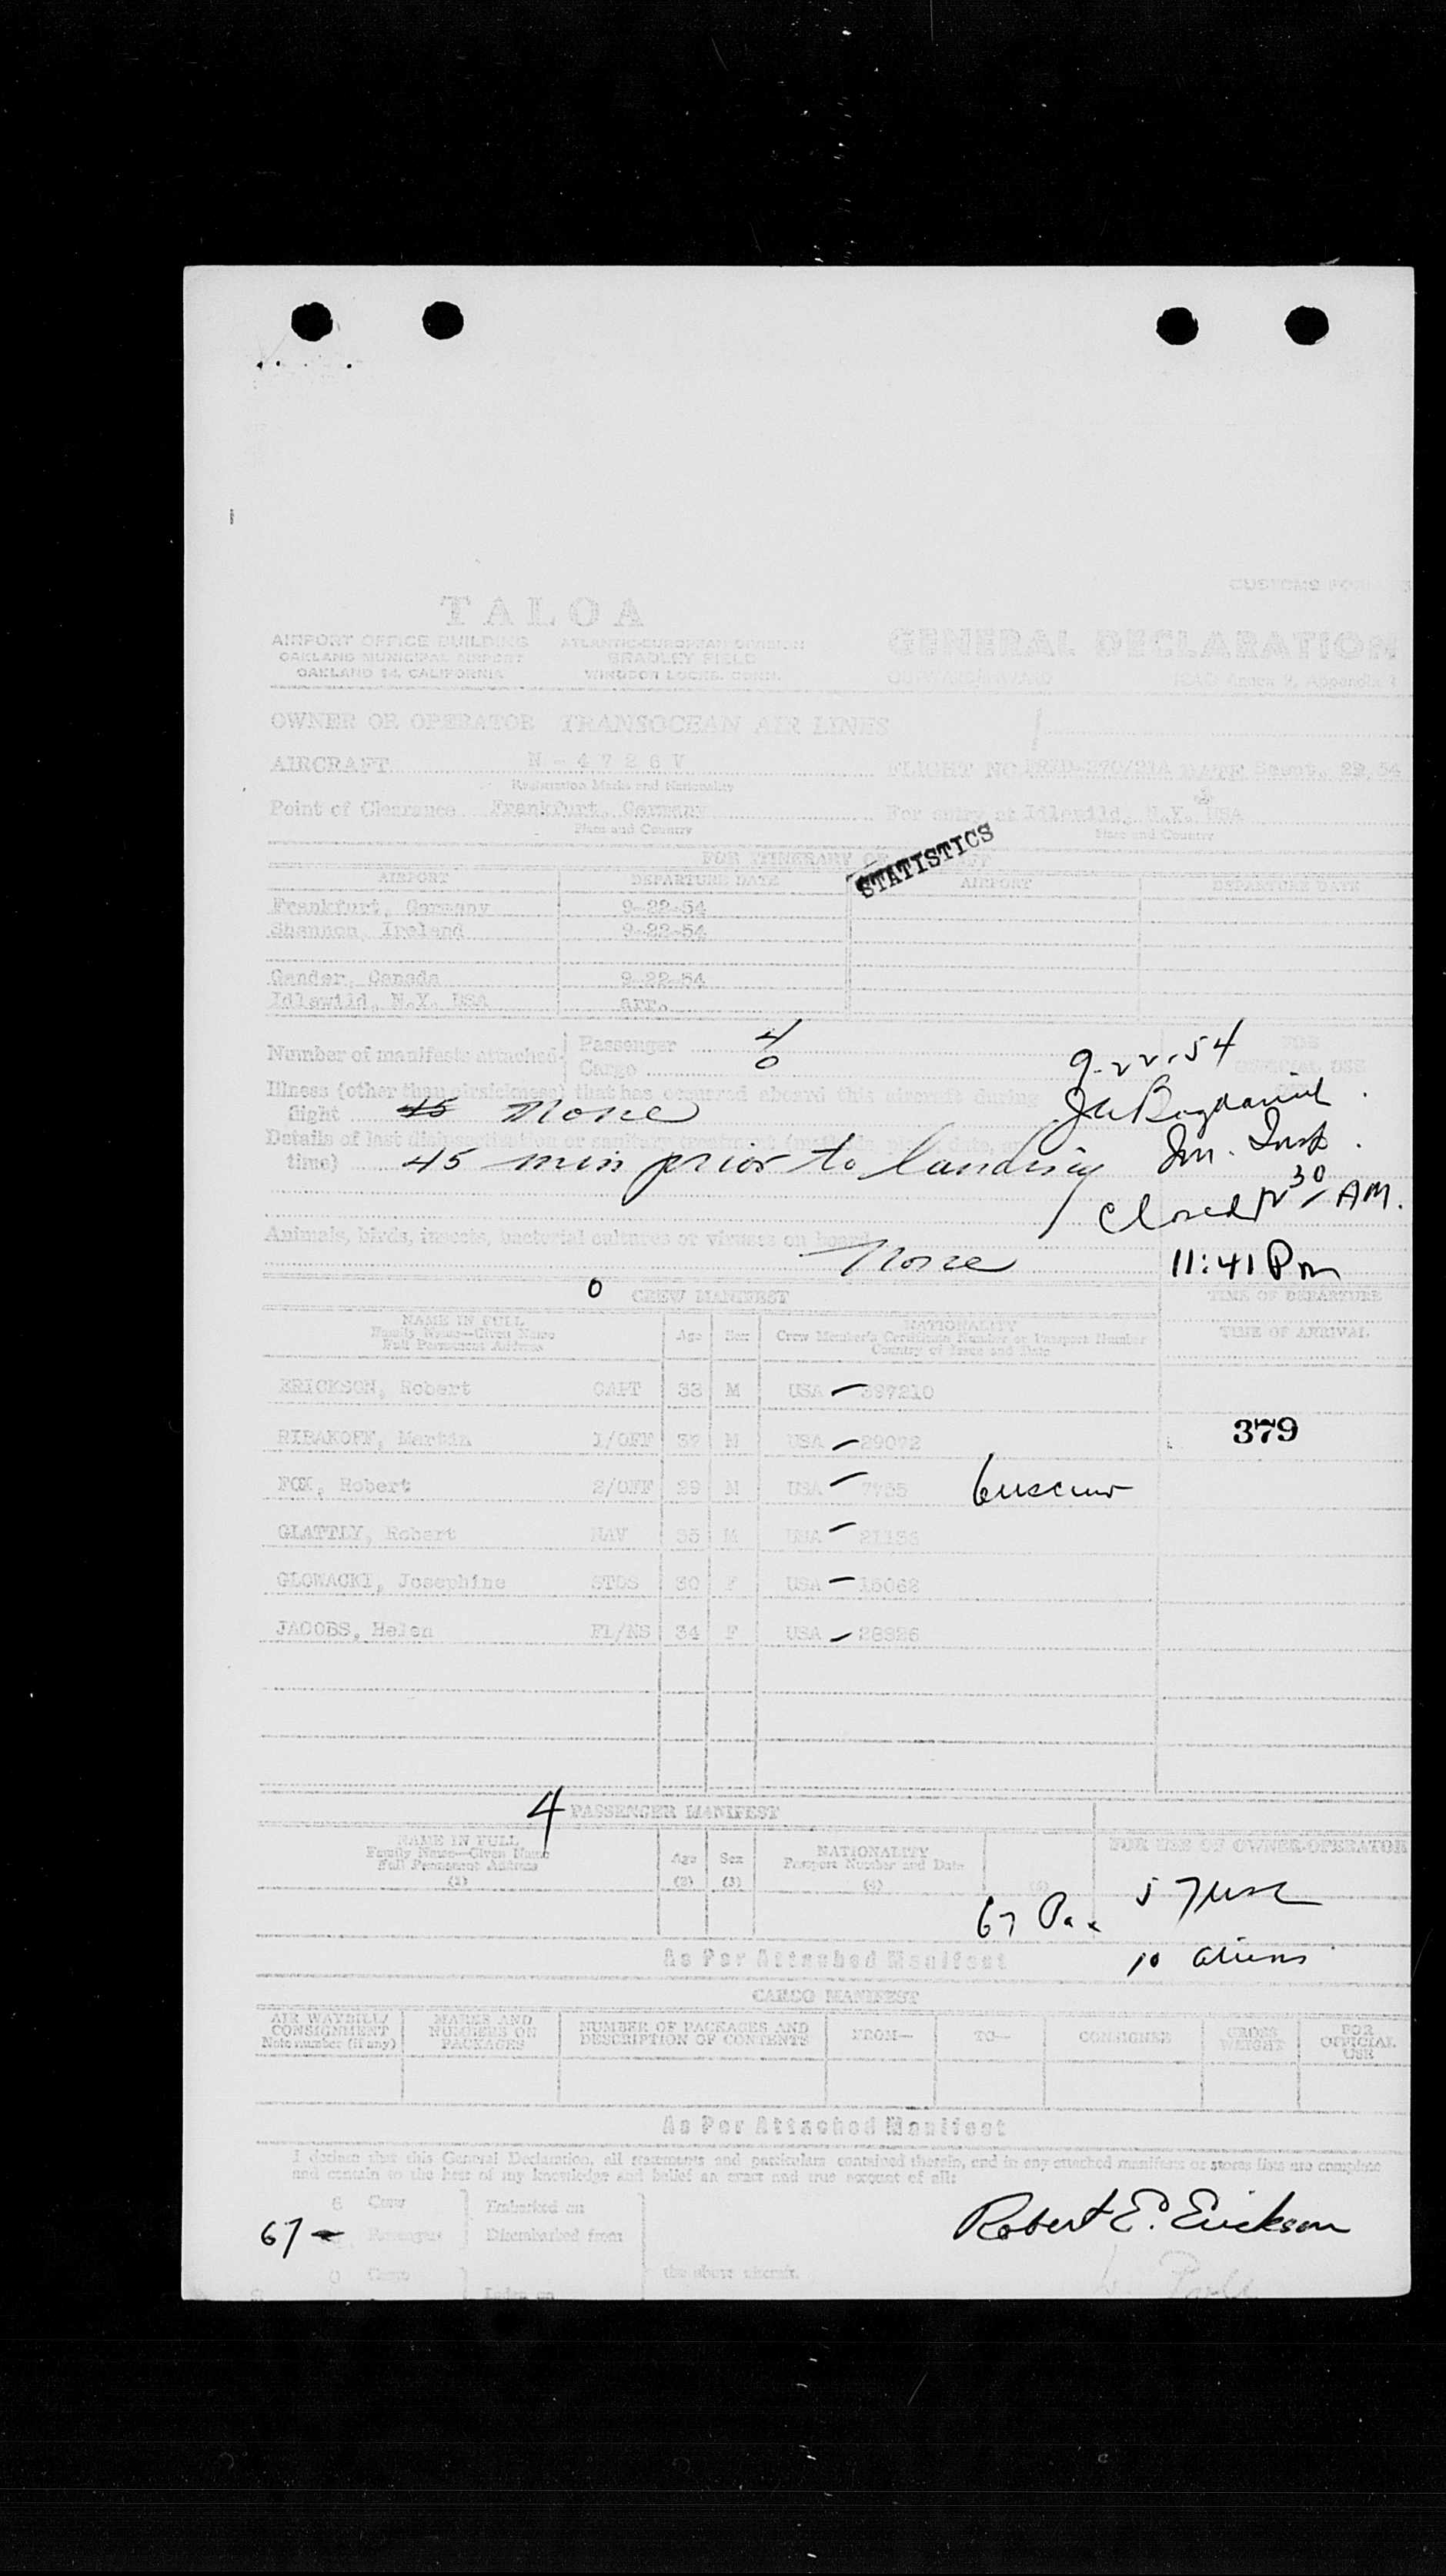 CUSTOMS FORM
TALOA
AIRPORT OFFICE BUILDING
OAKLAND MUNICIPAL AIRPORT
OAKLAND 14, CALIFORNIA
ATLANTIC-EUROPEAN DIVISION
BRADLEY FIELD
WINDSOR LOCKS, CONN.
GENERAL DECLARATION
OUTWARD/INWARD
ICAO Annex 9, Appendix 1
OWNER OR OPERATOR TRANSOCEAN AIR LINES
AIRCRAFT N-4726V
Registration Marks and Nationality
FLIGHT NO. DATE Sept. 22, 54
Point of Clearance Frankfurt, Germany
Place and Country
For entry at Idlewild, N.Y. USA
Place and Country
STATISTICS
FOR ITINERARY OF
AIRPORT DEPARTURE DATE AIRPORT DEPARTURE DATE
Frankfurt, Germany 9-22-54
Shannon, Ireland 9-22-54
Gander, Canada 9-22-54
Idlewild, N.Y. USA arr.
Number of manifests attached
Passenger 4
Cargo 0
FOR
OFFICIAL USE
9-22-54
Illness (other than airsickness) that has occurred aboard this aircraft during
flight 45 None
Details of last disinsectization or sanitary treatment
time) 45 min prior to landing
Im. Insp.
Closed 12 30 AM.
Animals, birds, insects, bacterial cultures or viruses on board
None
11:41 Pm
0 CREW MANIFEST
TIME OF DEPARTURE
NAME IN FULL
Family Name—Given Name
Full Permanent Address
Age Sex
NATIONALITY
Crew Member's Certificate Number or Passport Number
Country of Issue and Date
TIME OF ARRIVAL
ERICKSON, Robert CAPT 33 M USA - 397210
RIBAKOFF, Martin 1/OFF 37 M USA - 29072
379
FOX, Robert 2/OFF 29 M USA - 7735
GLATTLY, Robert NAV 35 M USA - 21136
GLOWACKI, Josephine STDS 30 F USA - 15062
JACOBS, Helen FL/NS 34 F USA - 28826
4 PASSENGER MANIFEST
NAME IN FULL
Family Name—Given Name
Full Permanent Address
(1)
Age
(2)
Sex
(3)
NATIONALITY
Passport Number and Date
(4)
FOR USE OF OWNER-OPERATOR
67 Pax
57 usc
10 aliens
As Per Attached Manifest
CARGO MANIFEST
AIR WAYBILL/
CONSIGNMENT
Note number (if any)
MARKS AND
NUMBERS ON
PACKAGES
NUMBER OF PACKAGES AND
DESCRIPTION OF CONTENTS
FROM—
TO—
CONSIGNEE
GROSS
WEIGHT
FOR
OFFICIAL
USE
As Per Attached Manifest
I declare that this General Declaration, all statements and particulars contained therein, and in any attached manifests or stores lists are complete
and contain to the best of my knowledge and belief an exact and true account of all:
6 Crew
Embarked on
67 Passengers
Disembarked from
0 Cargo
the above aircraft.
Laden on
Robert E. Erickson